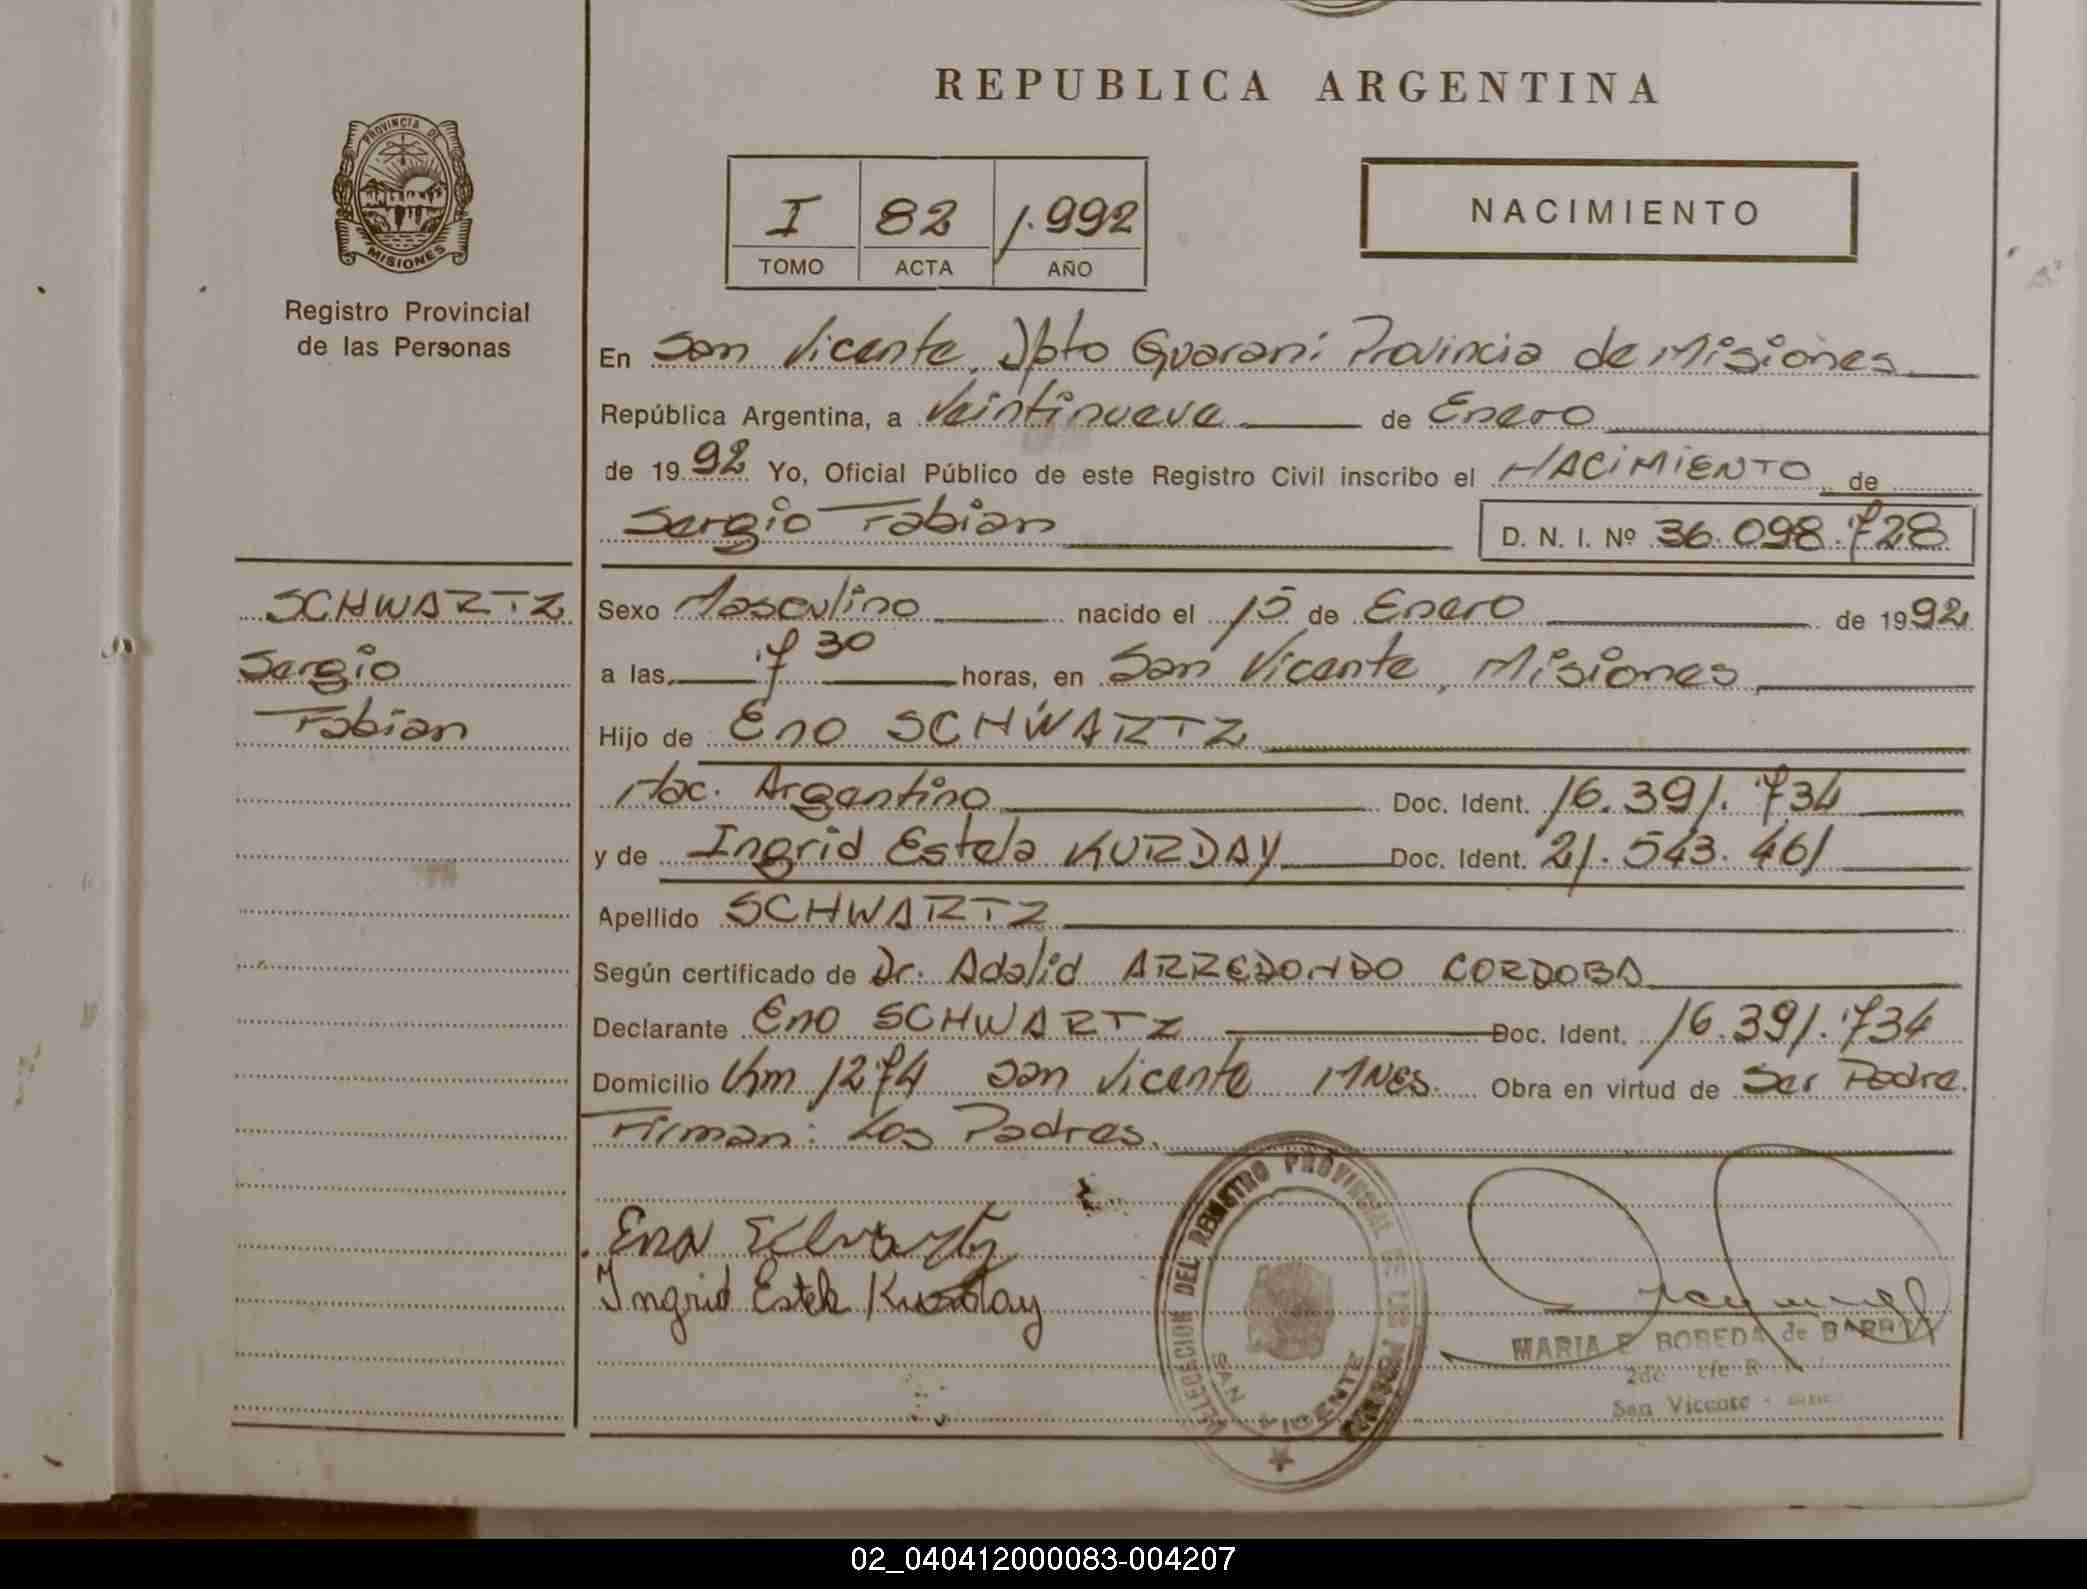 REPUBLICA ARGENTINA
PROVINCIA DE
MISIONES
Registro Provincial
de las Personas
I 82 1.992
TOMO ACTA AÑO
NACIMIENTO
En San Vicente, Dpto Guaraní Provincia de Misiones
República Argentina, a Veintinueve de Enero
de 1992 Yo, Oficial Público de este Registro Civil inscribo el NACIMIENTO de
Sergio Fabian D. N. I. Nº 36.098.728
SCHWARTZ
Sergio
Fabian
Sexo Masculino nacido el 15 de Enero de 1992
a las 7 30 horas, en San Vicente, Misiones
Hijo de Eno SCHWARTZ
Nac. Argentino Doc. Ident. 16.391.734
y de Ingrid Estela KURDAY Doc. Ident. 21.543.461
Apellido SCHWARTZ
Según certificado de Dr. Adalid ARREDONDO CORDOBA
Declarante Eno SCHWARTZ Doc. Ident. 16.391.734
Domicilio Km 1274 San Vicente MNES. Obra en virtud de Ser Padre.
Firman: Los Padres.
Eno Schwartz
Ingrid Estela Kurday
DELEGACION DEL REGISTRO PROVINCIAL DE LAS PERSONAS
SAN VICENTE
MARIA E. BOBEDA de
San Vicente
02_040412000083-004207